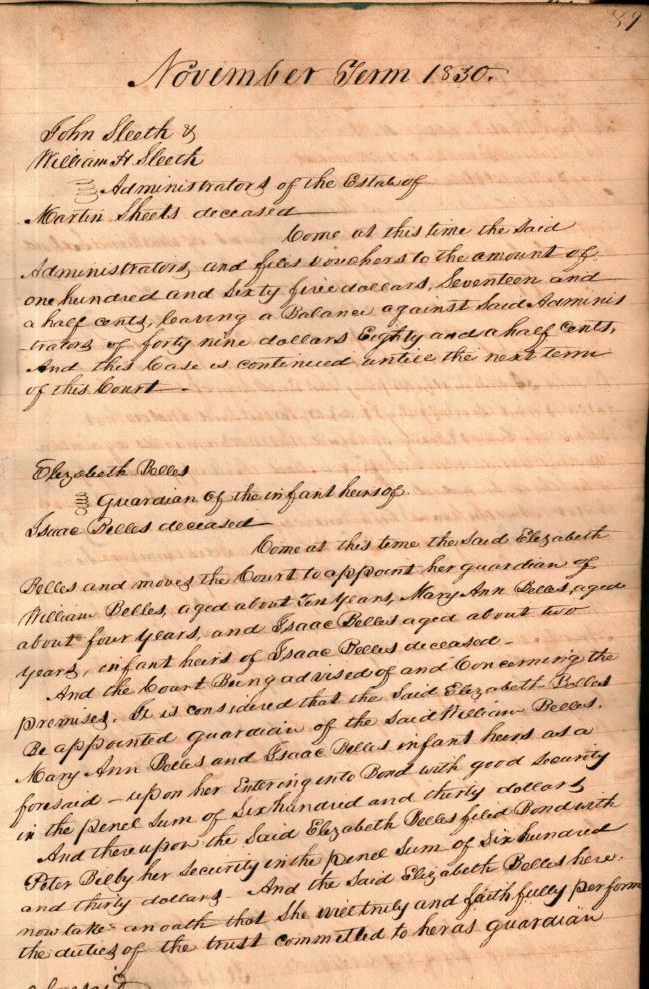 89
November Term 1830.
John Sleeth &
William H Sleeth
Administrators of the Estate of
Martin Sheets deceased
Come at this time the Said
Administrators and files vouchers to the amount of
one hundred and Sixty five dollars, Seventeen and
a half cents, leaving a Balance against Said Adminis
-trators of forty nine dollars Eighty and a half Cents,
And this Case is continued untill the next term
of this Court
Elizabeth Belles
Guardian of the infant heirs of
Isaac Belles deceased
Come at this time the Said Elizabeth
Belles and moves the Court to appoint her guardian of
William Belles, aged about Ten Years, Mary Ann Belles, aged
about four years, and Isaac Belles aged about two
years, infant heirs of Isaac Belles deceased -
And the Court Being advised of and Concerning the
premises. It is considered that the Said Elizabeth Belles
Be appointed guardian of the Said William Belles.
Mary Ann Belles and Isaac Belles infant heirs as a
foresaid - upon her Entering into Bond with good Security
in the penel Sum of Six hundred and thirty dollars
And thereupon the Said Elizabeth Belles filed Bond with
Peter Bilby her Security in the penel Sum of Six hundred
and thirty dollars - And the Said Elizabeth Belles here
now take an oath that She will truly and faithfully perform
the duties of the trust committed to her as guardian